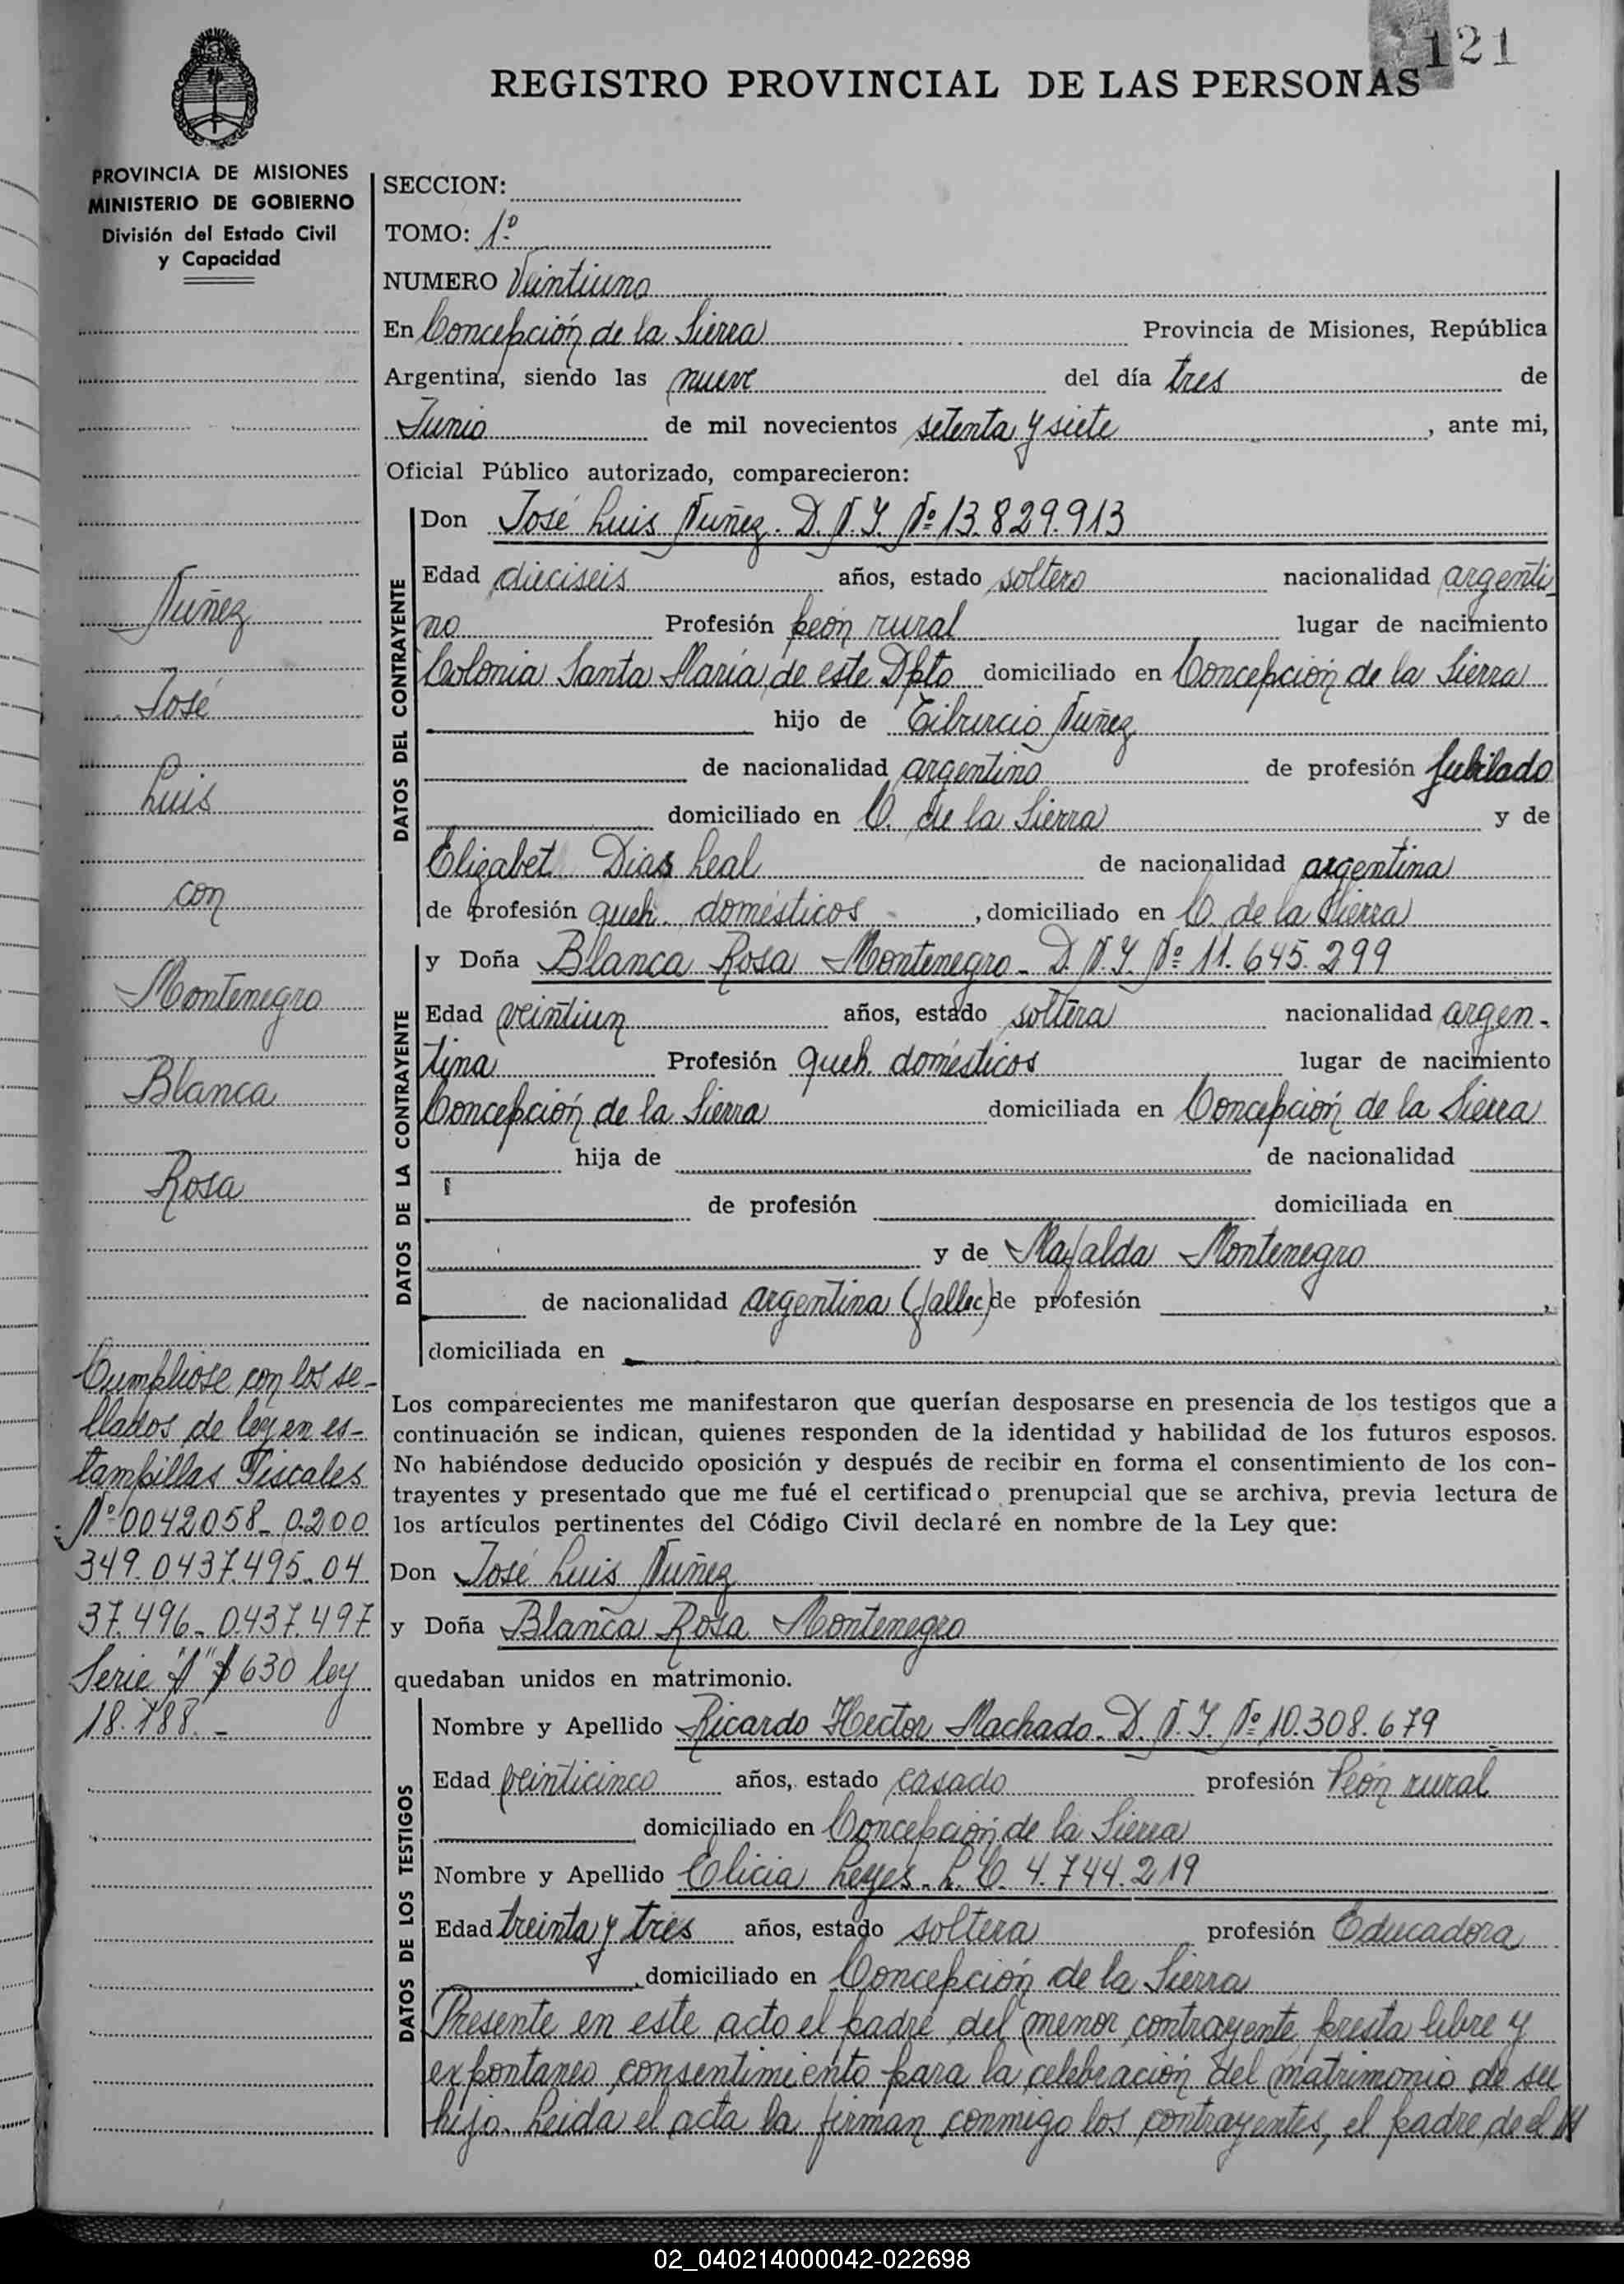 121
REGISTRO PROVINCIAL DE LAS PERSONAS
PROVINCIA DE MISIONES
MINISTERIO DE GOBIERNO
División del Estado Civil
y Capacidad
SECCION:
TOMO: 1º
NUMERO Veintiuno
En Concepción de la Sierra Provincia de Misiones, República
Argentina, siendo las nueve del día tres de
Junio de mil novecientos setenta y siete, ante mi,
Oficial Público autorizado, comparecieron:
DATOS DEL CONTRAYENTE
Don José Luis Nuñez. D. N. I. Nº 13.829.913
Edad dieciseis años, estado soltero nacionalidad argenti
no Profesión peón rural lugar de nacimiento
Colonia Santa María de este Dpto domiciliado en Concepción de la Sierra
hijo de Tiburcio Nuñez
de nacionalidad argentino de profesión Jubilado
domiciliado en C. de la Sierra y de
Elizabet Dias Leal de nacionalidad argentina
de profesión queh. domésticos, domiciliado en C. de la Sierra
DATOS DE LA CONTRAYENTE
y Doña Blanca Rosa Montenegro - D. N. I. Nº 11.645.299
Edad veintiun años, estado soltera nacionalidad argen-
tina Profesión queh. domésticos lugar de nacimiento
Concepción de la Sierra domiciliada en Concepción de la Sierra
hija de de nacionalidad
de profesión domiciliada en
y de Mafalda Montenegro
de nacionalidad argentina (fallec) de profesión ,
domiciliada en
Los comparecientes me manifestaron que querían desposarse en presencia de los testigos que a
continuación se indican, quienes responden de la identidad y habilidad de los futuros esposos.
No habiéndose deducido oposición y después de recibir en forma el consentimiento de los con-
trayentes y presentado que me fué el certificado prenupcial que se archiva, previa lectura de
los artículos pertinentes del Código Civil declaré en nombre de la Ley que:
Don José Luis Nuñez
y Doña Blanca Rosa Montenegro
quedaban unidos en matrimonio.
DATOS DE LOS TESTIGOS
Nombre y Apellido Ricardo Hector Machado. D. N. I. Nº 10.308.679
Edad veinticinco años, estado casado profesión Peón rural
domiciliado en Concepción de la Sierra
Nombre y Apellido Elicia Leyes. L. C. 4.744.219
Edad treinta y tres años, estado soltera profesión Educadora
domiciliado en Concepción de la Sierra
Presente en este acto el padre del menor contrayente presta libre y
expontaneo consentimiento para la celebración del matrimonio de su
hijo. Leida el acta la firman conmigo los contrayentes, el padre de el
Nuñez
José
Luis
con
Montenegro
Blanca
Rosa
Cumpliose con los se-
llados de ley en es-
tampillas Fiscales
Nº 0042058- 0.200
349. 0437.495- 04
37.496- 0.437.497
Serie "A" $ 630 ley
18.188.-
02_040214000042-022698